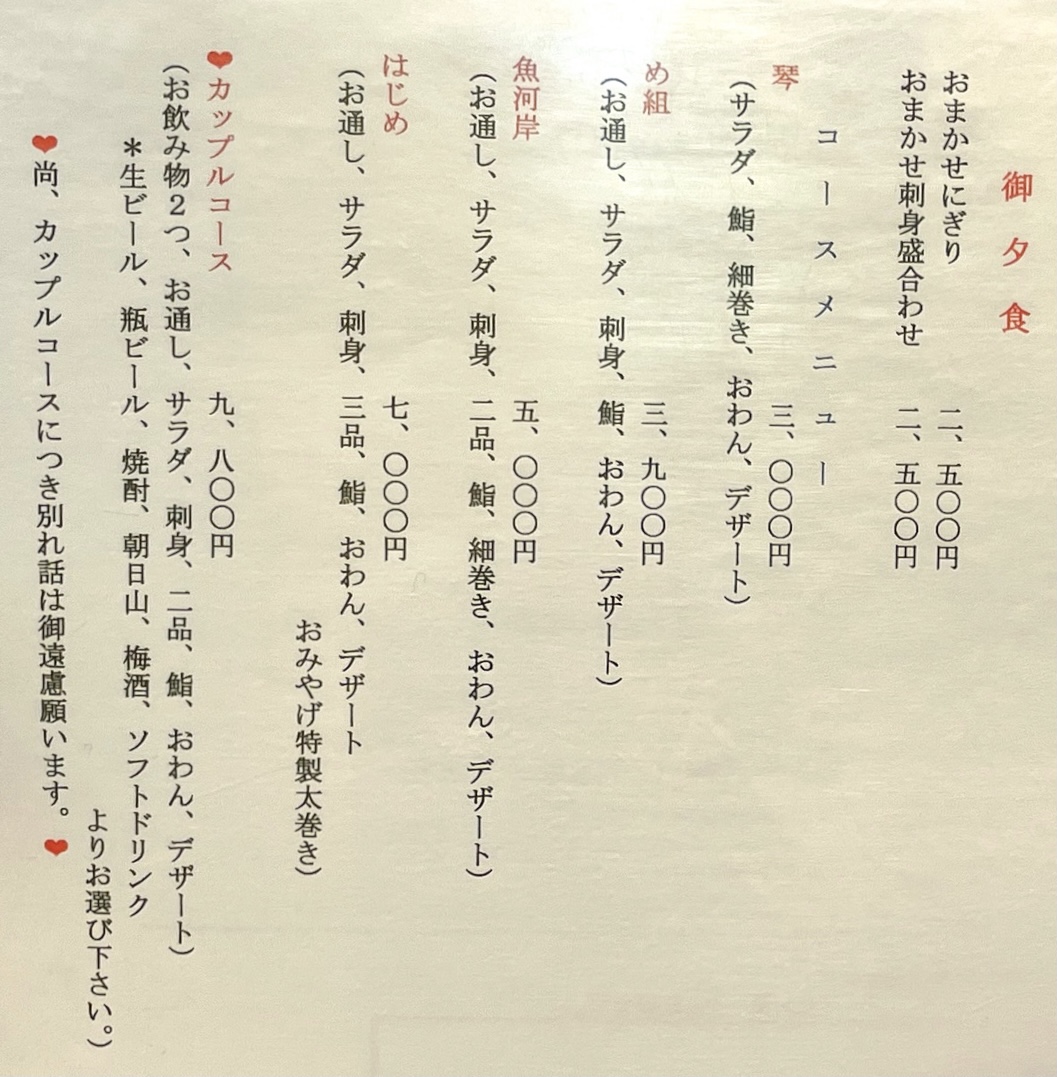 御夕食
おまかせにぎり　二、五〇〇円
おまかせ刺身盛合わせ　二、五〇〇円
コースメニュー
琴　三、〇〇〇円
（サラダ、鮨、細巻き、おわん、デザート）
め組　三、九〇〇円
（お通し、サラダ、刺身、鮨、おわん、デザート）
魚河岸　五、〇〇〇円
（お通し、サラダ、刺身、二品、鮨、細巻き、おわん、デザート）
はじめ　七、〇〇〇円
（お通し、サラダ、刺身、三品、鮨、おわん、デザート
おみやげ特製太巻き）
❤カップルコース　九、八〇〇円
（お飲み物２つ、お通し、サラダ、刺身、二品、鮨、おわん、デザート）
＊生ビール、瓶ビール、焼酎、朝日山、梅酒、ソフトドリンク
よりお選び下さい。）
❤尚、カップルコースにつき別れ話は御遠慮願います。❤